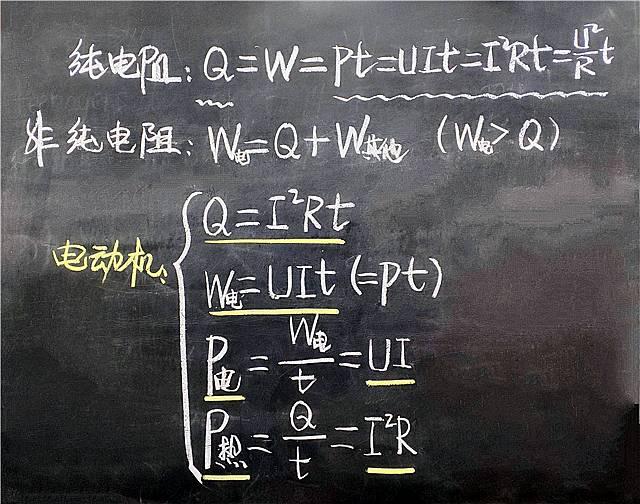 纯电阻: Q=W=Pt=UIt=I²Rt=U²/R t
非纯电阻: W电=Q+W其他 (W电>Q)
电动机:
Q=I²Rt
W电=UIt(=Pt)
P电=W电/t=UI
P热=Q/t=I²R